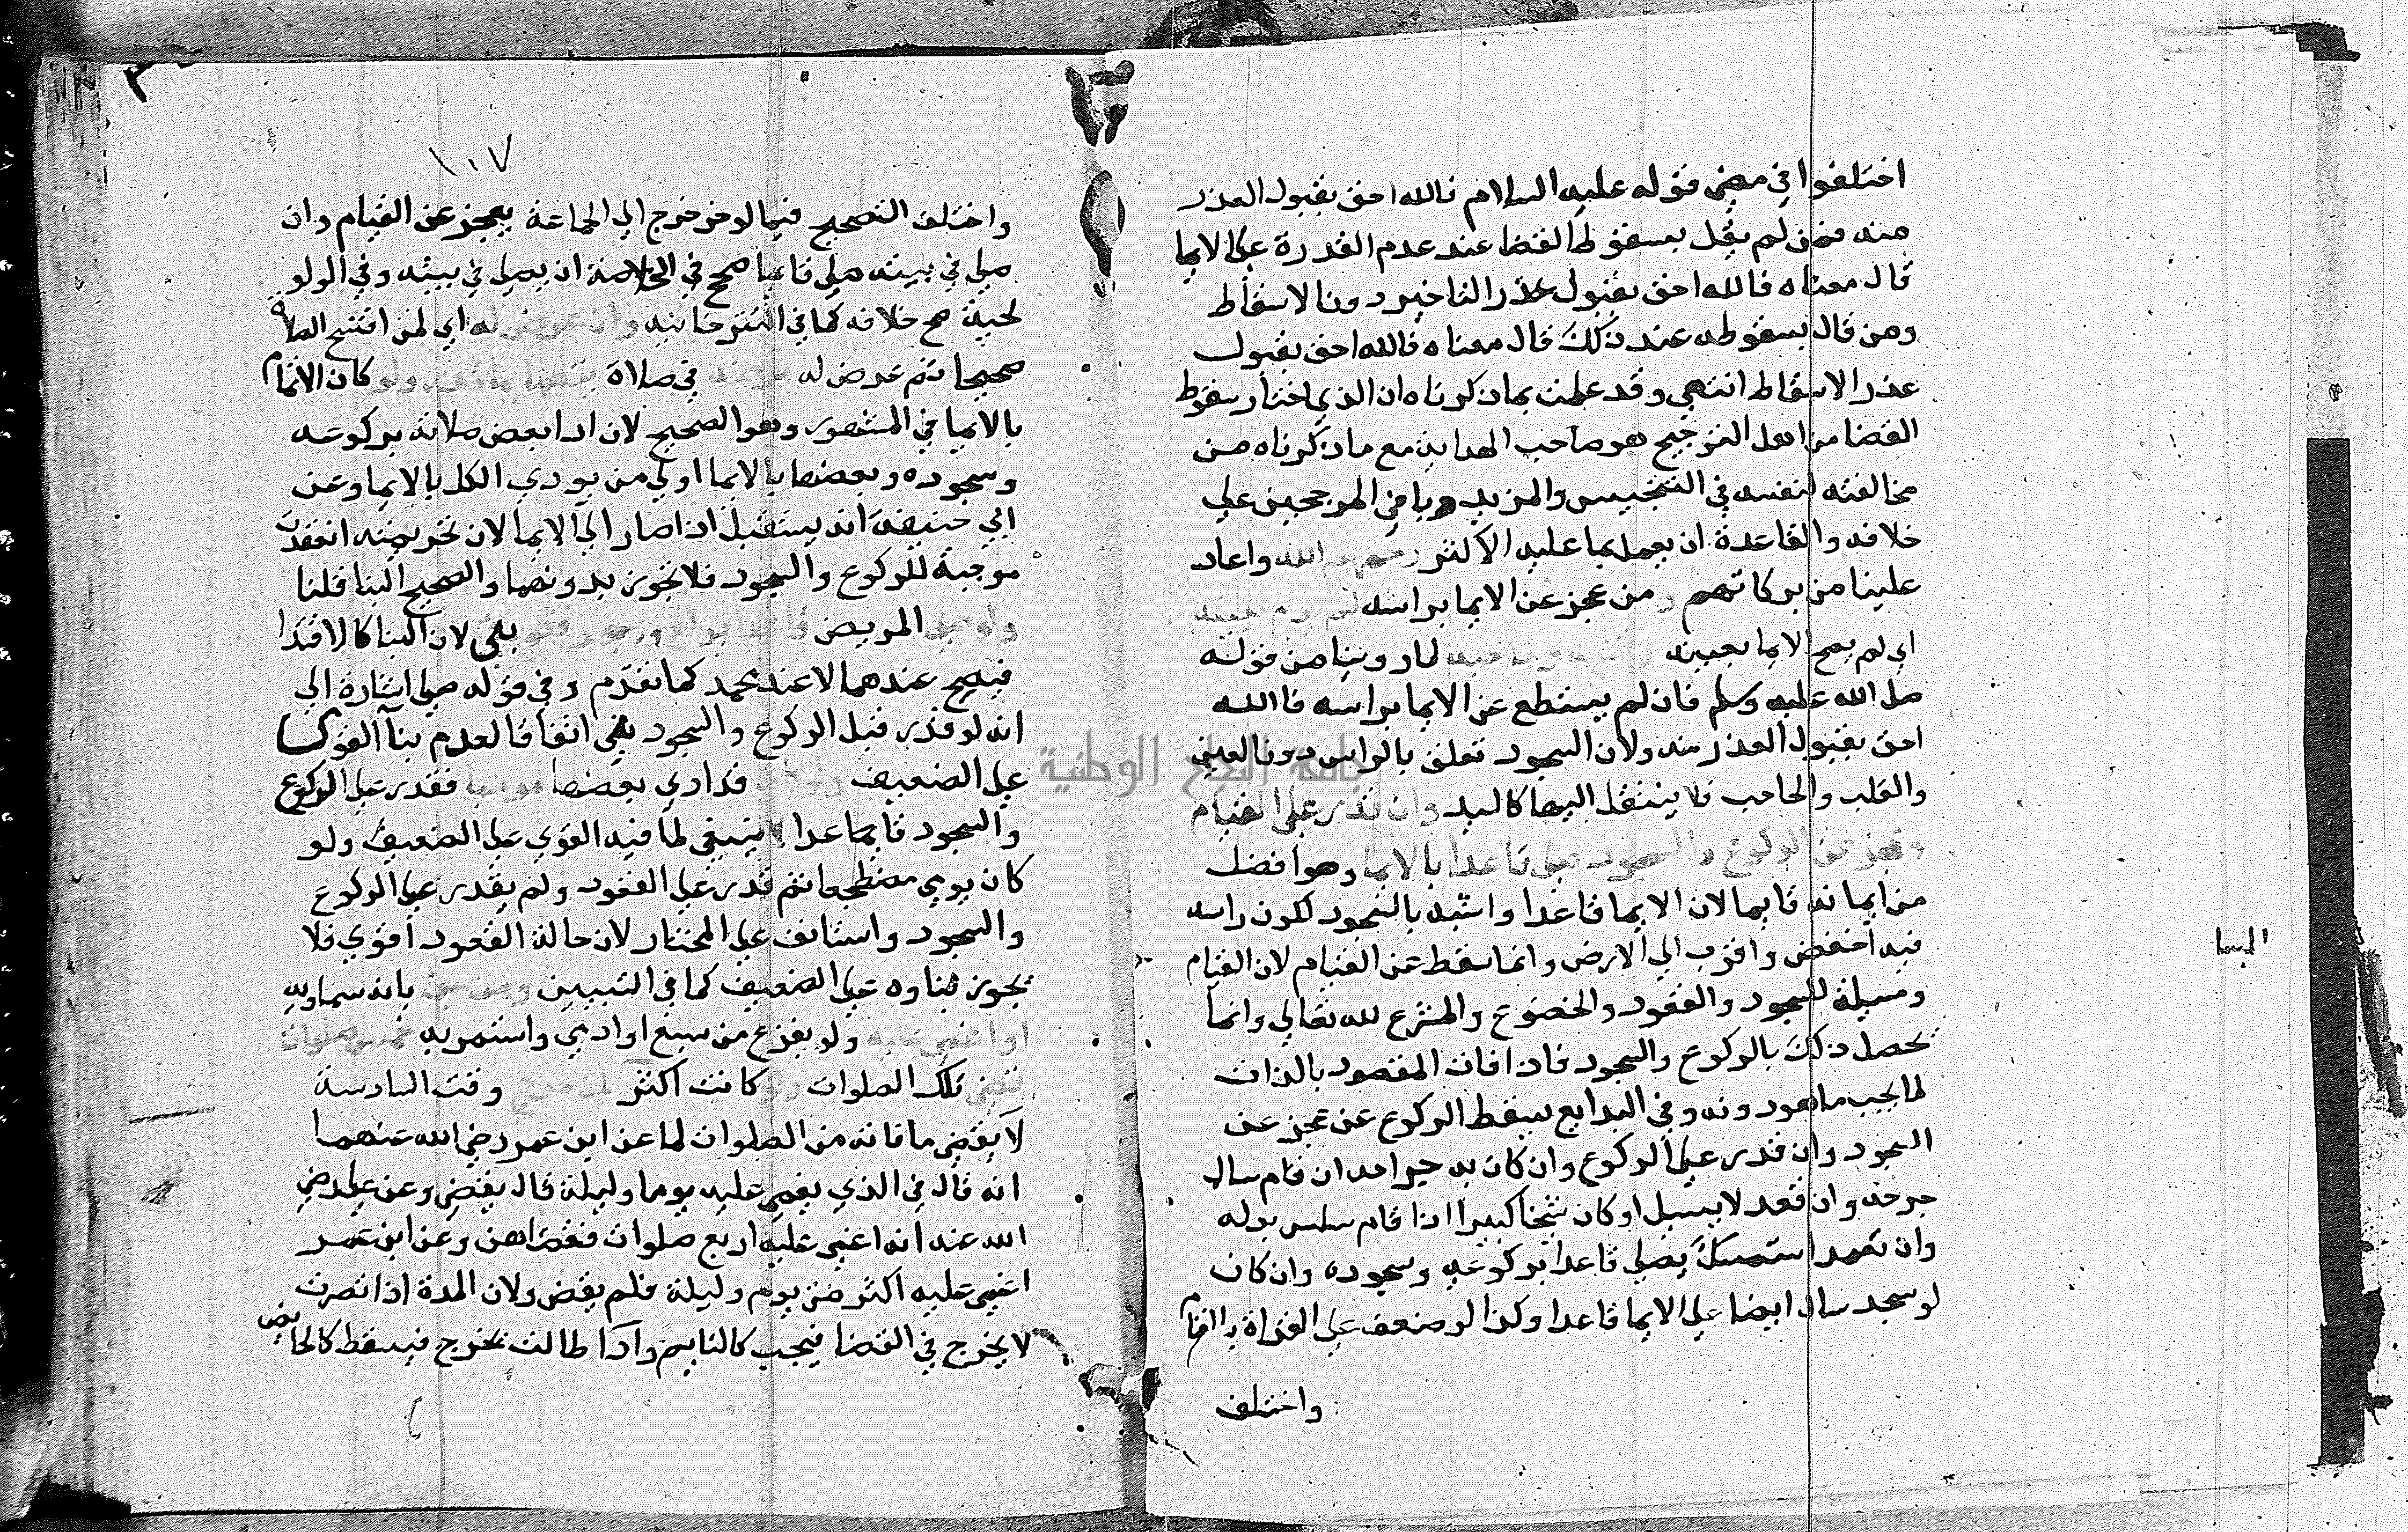 اختلفوا في معنى قوله عليه السلام فالله احق بقبول العذر
منه فمن لم يقل بسقوط القضا عند عدم القدرة على الايما
قال معناه فالله احق بقبول عذر التاخير دون الاسقاط
ومن قال بسقوطه عند ذلك قال معناه فالله احق بقبول
عذر الاسقاط انتهي وقد علمت بما ذكرناه ان الذي اختار سقوط
القضا من اهل الترجيح هو صاحب الهداية مع ما ذكرناه من
مخالفته لنفسه في التجنيس والمزيد وباقي المرجحين علي
خلافه والقاعدة ان يعمل بما عليه الاكثر رحمهم الله واعاد
علينا من بركاتهم ومن عجز عن الايما براسه لم يوم بعينه
اي لم يصح الايما بعينه وقلبه وحاجبه لما روينا من قوله
صلى الله عليه وسلم فان لم يستطع عن الايما براسه فالله
احق بقبول العذر منه ولان السجود تعلق بالراس دون العين
والقلب والحاجب فلا ينتقل اليها كاليد وان قدر على القيام
وعجز عن الركوع والسجود صلى قاعدا بالايما وهو افضل
من ايمانه قايما لان الايما قاعدا واشبه بالسجود لكون راسه
فيه اخفض واقرب الي الارض وانما سقط عن القيام لان القيام
وسيلة للسجود والقعود والخضوع والتشرع لله تعالي وانما
يحصل ذلك بالركوع والسجود فاذا فات المقصود بالذات
لما يجب ما هو دونه وفي البدايع يسقط الركوع عن عجز عن
السجود وان قدر على الركوع وان كان به جراحه ان قام سال
جرحه وان قعد لا يسيل او كان شيخا كبيرا اذا قام سلس بوله
وان تعمد استمسك يصلي قاعدا بركوعه وسجوده وان كان
لو سجد سال ايضا على الايما قاعدا وكذا لو ضعف على القراة بالقيام
واختلف
البسا
جامعة النجاح الوطنية
١٠٧
واختلف التصحيح فيما لو خرج الي الجماعة يعجز عن القيام وان
صلى في بيته صلى قايما صحح في الخلاصة ان يصلي في بيته وفي الولو
لجية صحح خلافه كما في التترخانية وان عرض له اي لمن افتتح الصلاة
صحيحا ثم عرض له مرضه في صلاة يتمها بما قدر ولو كان الاتمام
بالايما في المشهور وهو الصحيح لان ادا بعض صلاته بركوعه
وسجوده وبعضها بالايما اولي من يودي الكل بالايما وعن
ابي حنيفة انه يستقبل اذا صار الي الايما لان تحريمته انعقدت
موجبة للركوع والسجود فلا تجوز بدونها والصحيح البنا قلنا
ولو صلى المريض قاعدا يركع ويسجد فصح بنى لان البنا كالاقتدا
فيصح عندهما لا عند محمد كما تقدم وفي قوله صلى اشارة الي
انه لو قدر قبل الركوع والسجود بنى اتفاقا لعدم بنا القوي
على الضعيف ولو كان قد ادي بعضها موميا فقدر على الركوع
والسجود قايما عدا لا يبنى لما فيه القوي على الضعيف ولو
كان يومي مضطجعا ثم قدر على القعود ولم يقدر على الركوع
والسجود واستانف علي المختار لان حالة القعود اقوي فلا
يجوز بناوه علي الضعيف كما في التبيين ومن جن بانه سماويه
او اغمي عليه ولو بفزع من سبع او ادمي واستمر به خمس صلوات
قضى تلك الصلوات ولو كانت اكثر بان خرج وقت السادسة
لا يقضي ما فاته من الصلوات لما عن ابن عمر رضي الله عنهما
انه قال في الذي يغمى عليه يوما وليلة قال يقضي وعن علي رضي
الله عنه انه اغمي عليه اربع صلوات فقضاهن وعن ابن عمر
اغمي عليه اكثر من يوم وليلة فلم يقض ولان المدة اذا قصرت
لا يخرج في القضا فيجب كالنايم واذا طالت يخرج فيسقط كالحايض